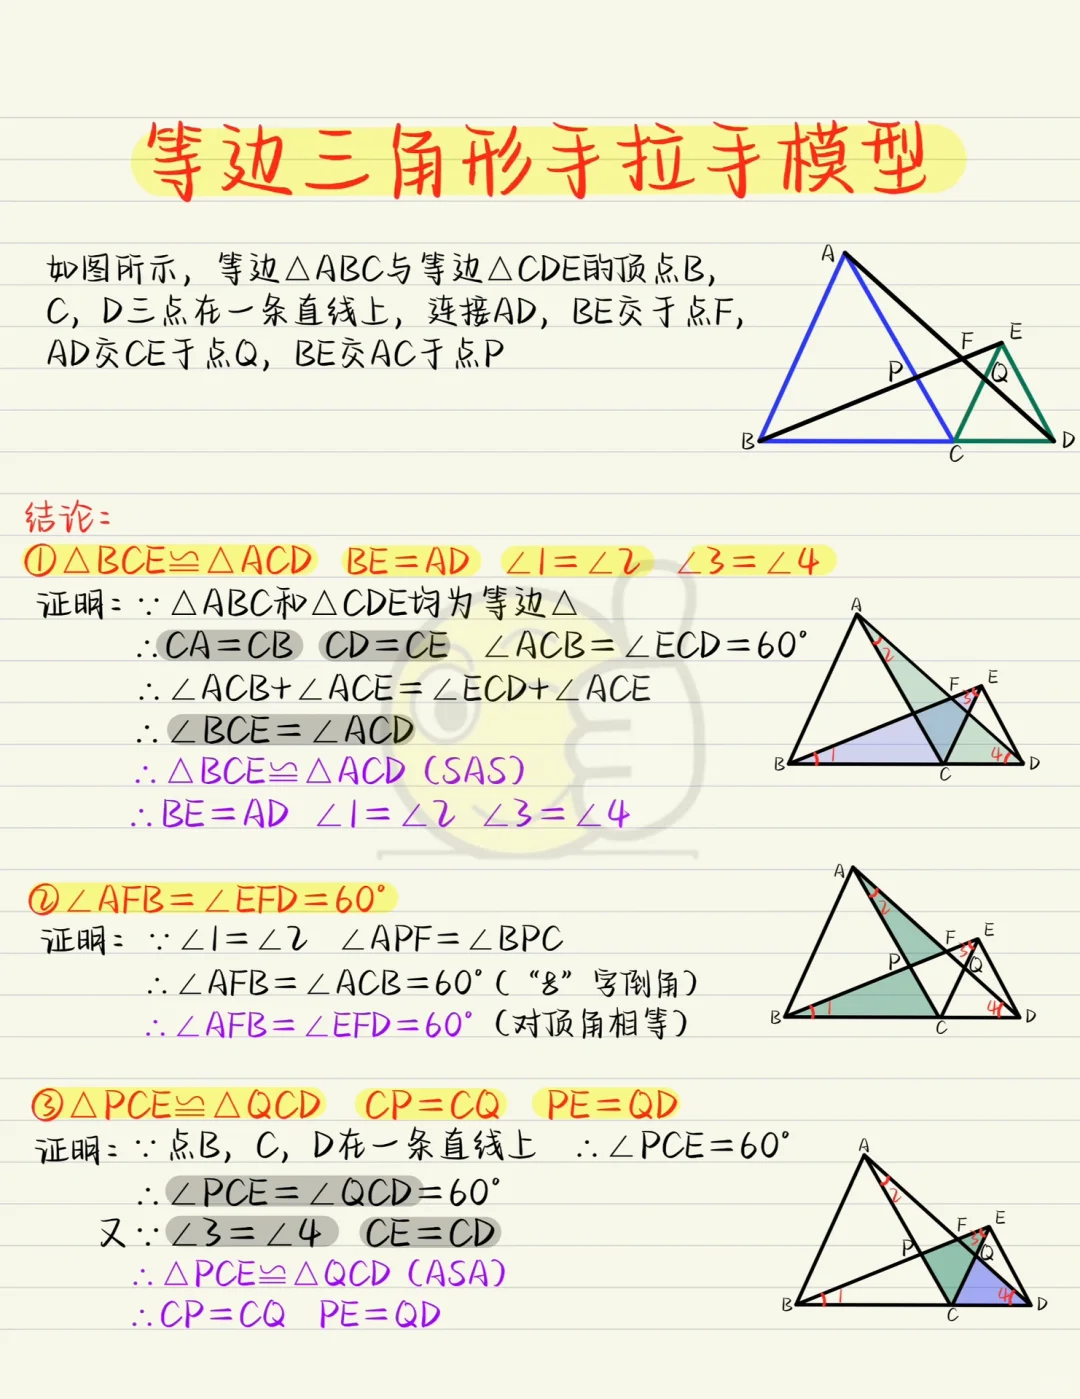 等边三角形手拉手模型
如图所示，等边△ABC与等边△CDE的顶点B，
C，D三点在一条直线上，连接AD，BE交于点F，
AD交CE于点Q，BE交AC于点P
A
E
F
P
Q
B
C
D
结论：
①△BCE≌△ACD BE=AD ∠1=∠2 ∠3=∠4
证明：∵△ABC和△CDE均为等边△
∴CA=CB CD=CE ∠ACB=∠ECD=60°
∴∠ACB+∠ACE=∠ECD+∠ACE
∴∠BCE=∠ACD
∴△BCE≌△ACD（SAS）
∴BE=AD ∠1=∠2 ∠3=∠4
A
2
F
E
3
B
1
C
4
D
②∠AFB=∠EFD=60°
证明：∵∠1=∠2 ∠APF=∠BPC
∴∠AFB=∠ACB=60°（“8”字倒角）
∴∠AFB=∠EFD=60°（对顶角相等）
A
2
F
E
3
P
Q
B
1
C
4
D
③△PCE≌△QCD CP=CQ PE=QD
证明：∵点B，C，D在一条直线上 ∴∠PCE=60°
∴∠PCE=∠QCD=60°
又∵∠3=∠4 CE=CD
∴△PCE≌△QCD（ASA）
∴CP=CQ PE=QD
A
2
F
E
3
P
Q
B
1
C
4
D